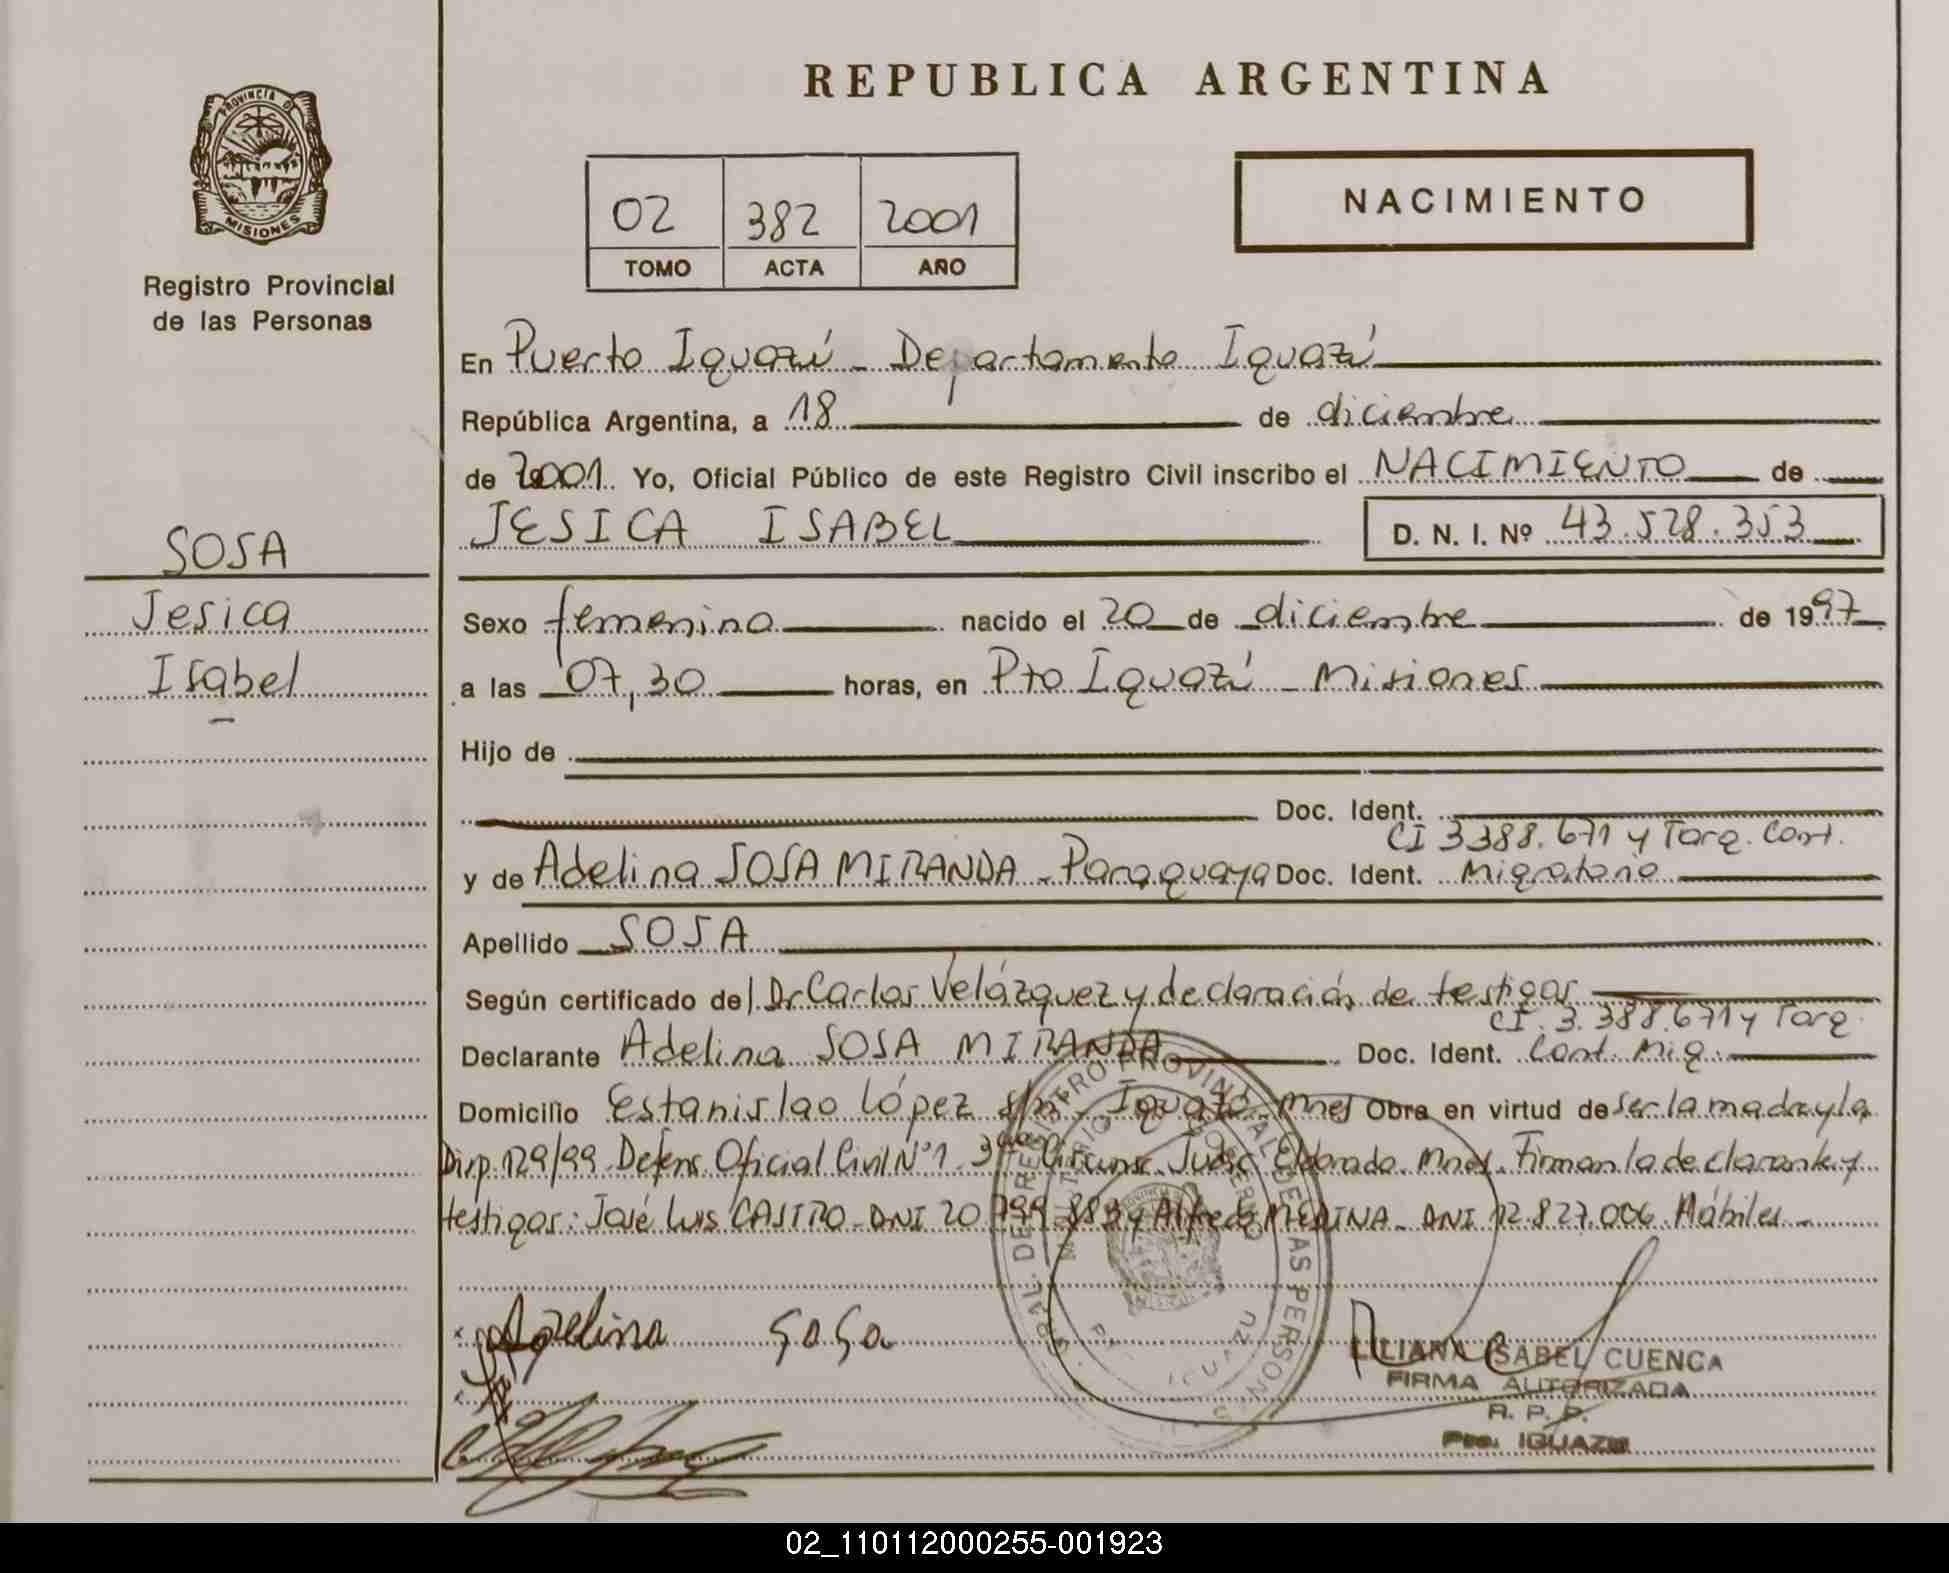 REPUBLICA ARGENTINA
PROVINCIA D
MISIONES
Registro Provincial
de las Personas
02 382 2001
TOMO ACTA AÑO
NACIMIENTO
En Puerto Iguazú - Departamento Iguazú
República Argentina, a 18 de diciembre
de 2001. Yo, Oficial Público de este Registro Civil inscribo el NACIMIENTO de
JESICA ISABEL D. N. I. Nº 43.528.353
SOSA
Jesica
Isabel
Sexo femenino nacido el 20 de diciembre de 1997
a las 07,30 horas, en Pto Iguazú - Misiones
Hijo de
Doc. Ident.
CI 3388.671 y Tarq. Cont.
y de Adelina SOSA MIRANDA - Paraguaya Doc. Ident. Migratorio
Apellido SOSA
Según certificado del Dr Carlos Velázquez y declaración de testigos
CI. 3.388.671 y Tarq.
Declarante Adelina SOSA MIRANDA Doc. Ident. Cont. Mig.
Domicilio Estanislao López s/n - Iguazú - Mnes Obra en virtud de ser la madre y la
Disp. 129/99 Defens. Oficial Civil Nº1 3ra Circunsc. Judic. Eldorado. Mnes. Firman la declarante y
testigos: José Luis CASTRO - DNI 20 799.883 y Alfredo MEDINA - DNI 12.827.006. Hábiles -
REGISTRO PROVINCIAL DE LAS PERSONAS
Adelina SoSa
LILIANA ISABEL CUENCA
FIRMA AUTORIZADA
R. P. P.
Pto. IGUAZU
02_110112000255-001923